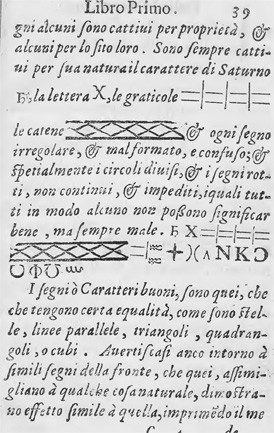 Libro Primo. 39
gni alcuni ſono cattiui per proprietà, &
alcuni per lo ſito loro. Sono ſempre catti-
ui per ſua natura il carattere di Saturno
♄, la lettera X, le graticole
le catene & ogni ſegno
irregolare, & malformato, e confuſo; &
ſpetialmente i circoli diuiſi, & i ſegni rot-
ti, non continui, & impediti, iquali tut-
ti in modo alcuno non poßono ſignificar
bene, ma ſempre male. ♄ X
I ſegni ò Caratteri buoni, ſono quei, che
che tengono certa equalità, come ſono ſtel-
le, linee parallele, triangoli, quadran-
goli, o cubi. Auertiſcaſi anco intorno à
ſimili ſegni della fronte, che quei, aſſimi-
gliano à qualche coſa naturale, dimoſtra-
no effetto ſimile à quella, imprimẽdo il me